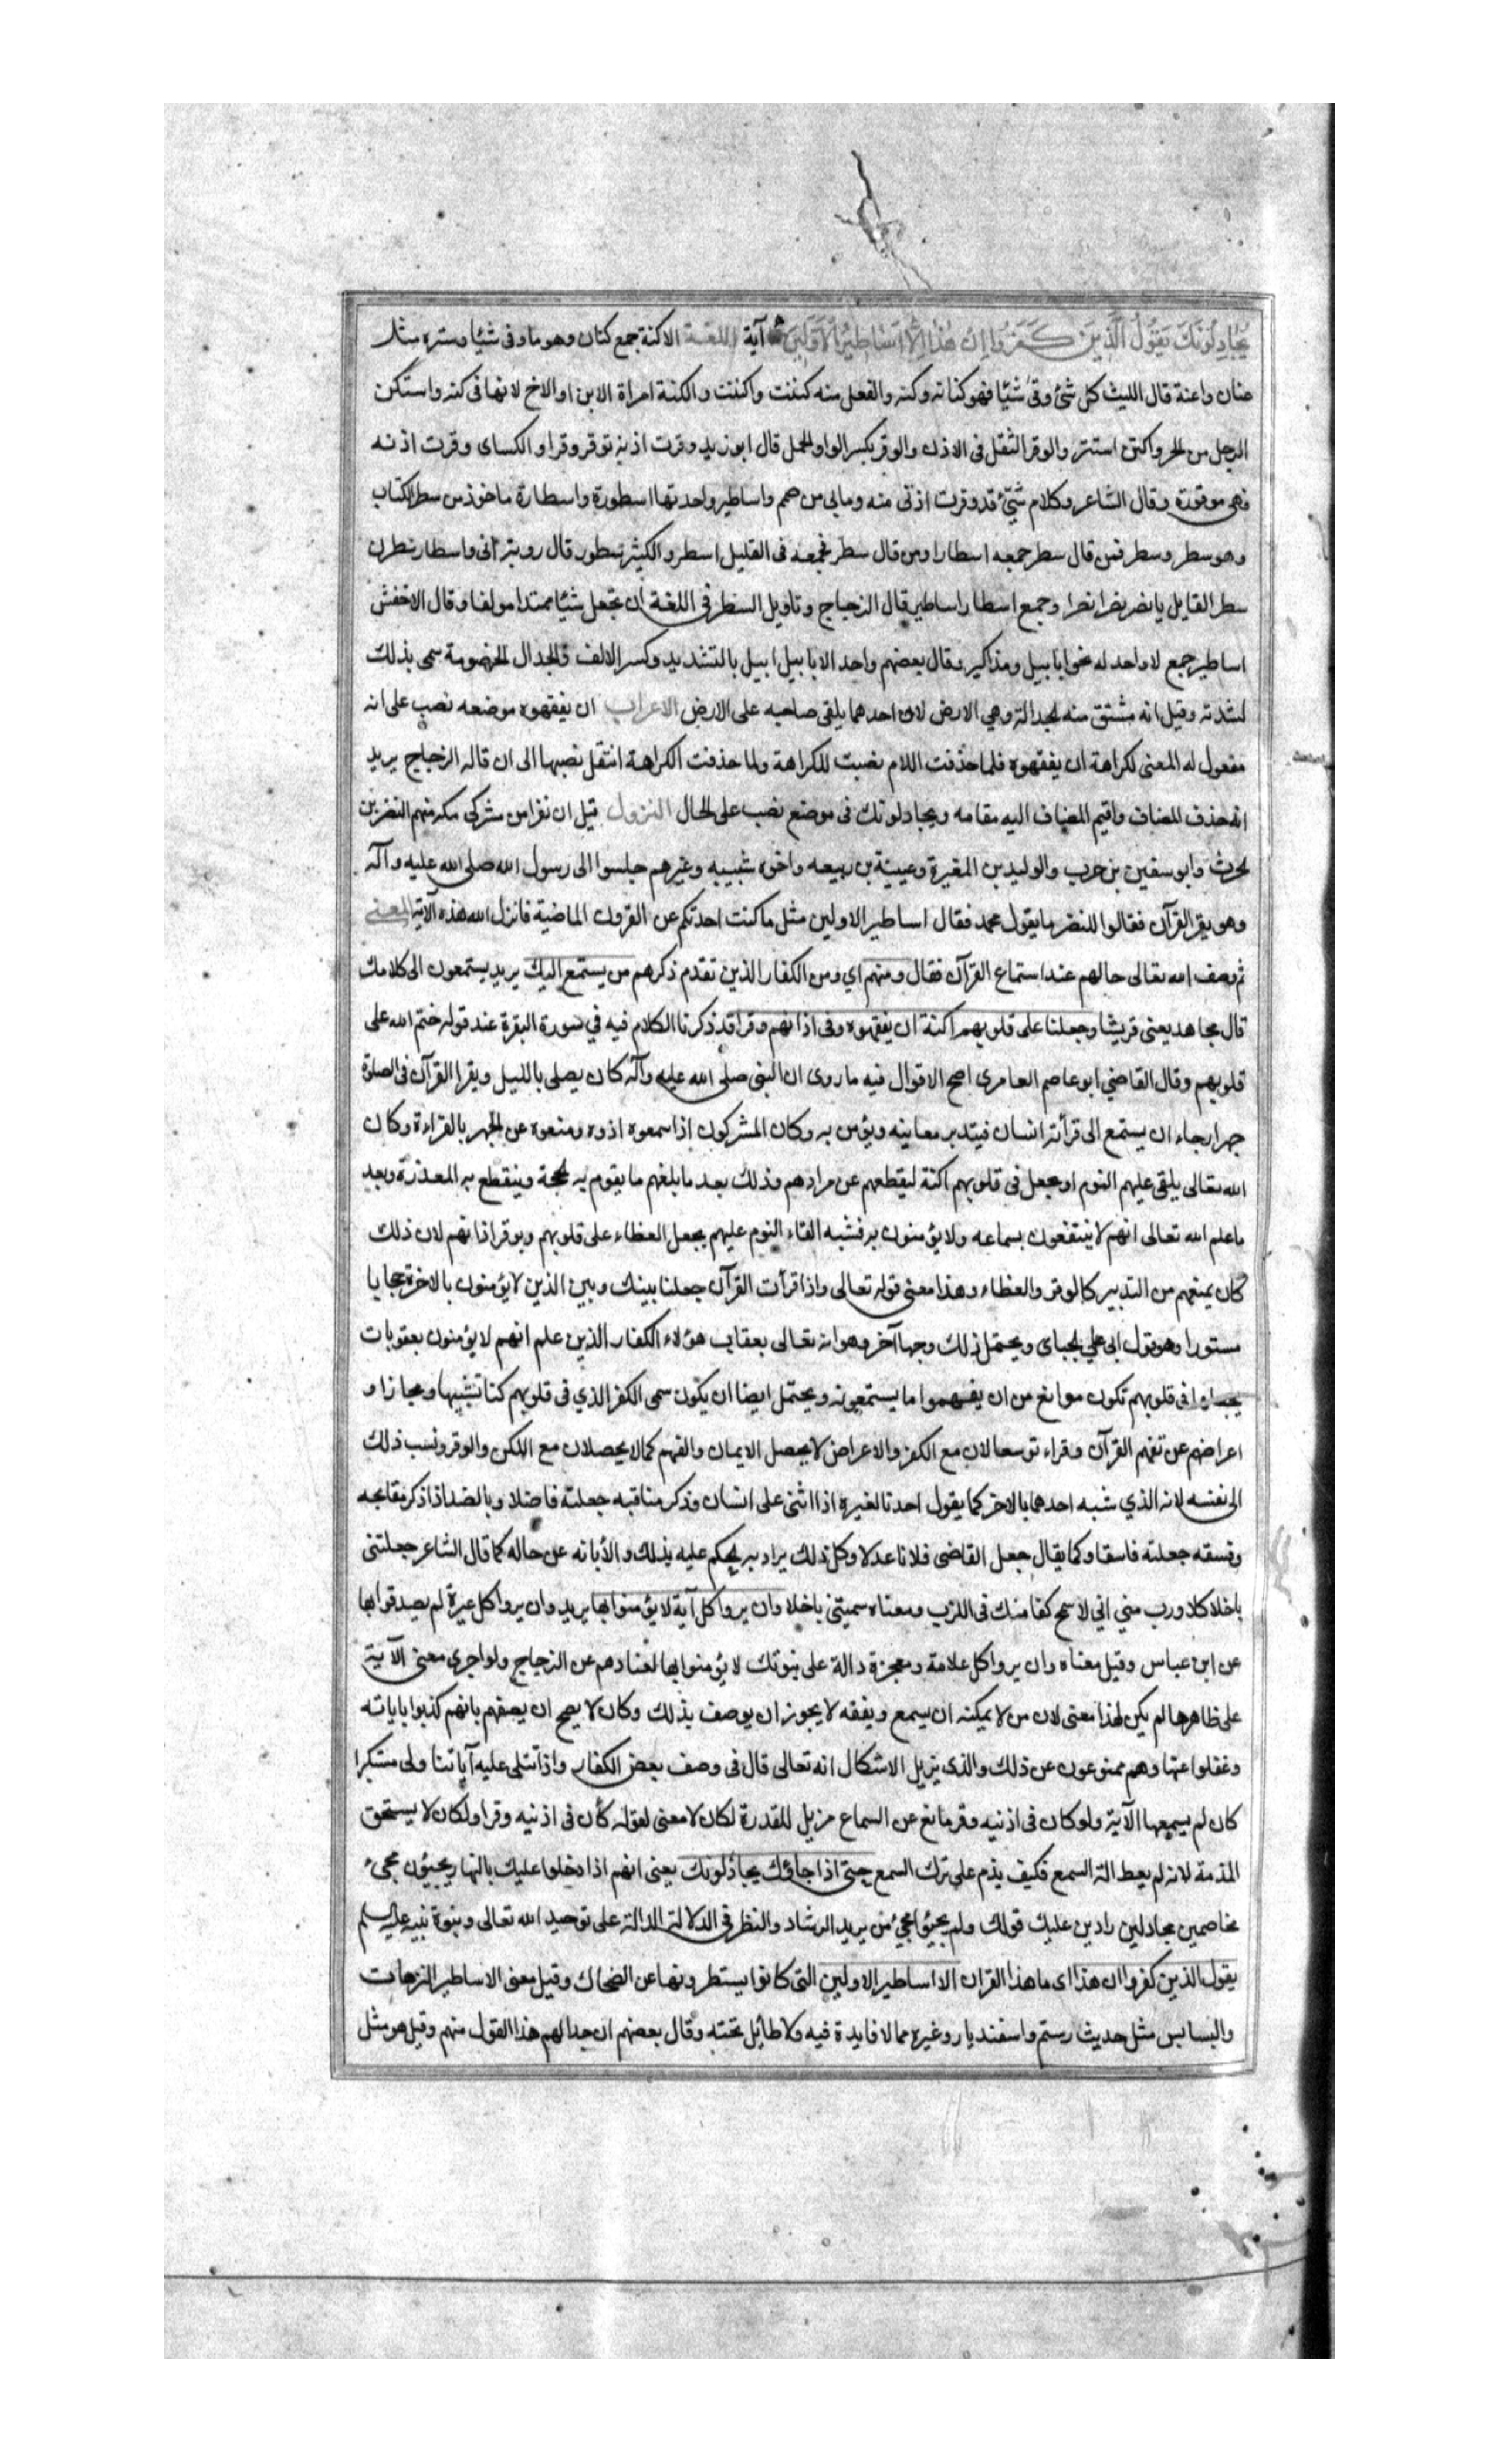 يُجَادِلُونَكَ يَقُولُ الَّذِينَ كَفَرُوا اِنْ هٰذَا اِلَّا اَسَاطِيرُ الْاَوَّلِينَ آية اللغة الاكنة جمع كنان وهو ما وقى شيئا وستره مثل
عنان واعنة قال الليث كل شئ وقى شيئا فهو كنانه وكنه والفعل منه كننت واكننت والكنة امراة الابن او الاخ لانها فى كنه واستكن
الرجل من الحر واكتن استتر والوقر الثقل فى الاذن والوقر بكسر الواو الحمل قال ابو زيد وقرت اذنه توقر وقرا و الكساى وقرت اذنه
فهى موقورة وقال الشاعر وكلام شئ قد وقرت اذنى منه وما بى من صمم واساطير واحدتها اسطورة واسطارة ماخوذ من سطر الكتاب
وهو سطر وسطر فمن قال سطر جمعه اسطارا ومن قال سطر فجمعه فى القليل اسطر والكثير سطور قال روبة انى واسطار سطرن
سطر القايل يا نصر نصرا نصرا وجمع اسطار اساطير قال الزجاج وتاويل السطر فى اللغة ان تجعل شيئا ممتدا مولفا وقال الاخفش
اساطير جمع لا واحد له نحو ابابيل ومذاكير وقال بعضهم واحد الابابيل ابيل بالتشديد وكسر الالف والجدال الخصومة سمى بذلك
لشدته وقيل انه مشتق منه الجدالة وهي الارض لان احدهما يلقى صاحبه على الارض الاعراب ان يفقهوه موضعه نصب على انه
مفعول له المعنى لكراهة ان يفقهوه فلما حذفت اللام نصبت للكراهة ولما حذفت الكراهة انتقل نصبها الى ان قاله الزجاج يريد
انه حذف المضاف واقيم المضاف اليه مقامه ويجادلونك فى موضع نصب على الحال النزول قيل ان نفرا من مشركى مكه منهم النضر بن
الحرث وابو سفين بن حرب والوليد بن المغيرة وعيينة بن ربيعه واخوه شيبه وغيرهم جلسوا الى رسول الله صلى الله عليه وآله
وهو يقرا القرآن فقالوا للنضر ما يقول محمد فقال اساطير الاولين مثل ما كنت احدثكم عن القرون الماضية فانزل الله هذه الآية المعنى
ثم وصف الله تعالى حالهم عند استماع القرآن فقال ومنهم اي ومن الكفار الذين تقدم ذكرهم من يستمع اليك يريد يستمعون الى كلامك
قال مجاهد يعنى قريشا وجعلنا على قلوبهم اكنة ان يفقهوه وفى اذانهم وقرا قد ذكرنا الكلام فيه في سورة البقرة عند قوله ختم الله على
قلوبهم وقال القاضي ابو عاصم العامرى اصح الاقوال فيه ما روى ان النبى صلى الله عليه وآله كان يصلى بالليل ويقرا القرآن فى الصلوة
جهرا رجاء ان يستمع الى قرأته انسان فيتدبر معانيه ويؤمن به وكان المشركون اذا سمعوه اذوه ومنعوه عن الجهر بالقراءة وكان
الله تعالى يلقى عليهم النوم او يجعل فى قلوبهم اكنة ليقطعهم عن مرادهم وذلك بعد ما بلغهم ما يقوم به الحجة وينقطع به المعذرة وبعد
ما علم الله تعالى انهم لا ينتفعون بسماعه ولا يؤمنون به فشبه القاء النوم عليهم بجعل الغطاء على قلوبهم وبوقر اذانهم لان ذلك
كان يمنعهم من التدبير كالوقر والغطاء وهذا معنى قوله تعالى واذا قرأت القرآن جعلنا بينك وبين الذين لا يؤمنون بالاخرة حجابا
مستورا وهو قول ابى علي الجباى ويحتمل ذلك وجها آخر وهو انه تعالى يعاقب هؤلاء الكفار الذين علم انهم لا يؤمنون بعقوبات
يجعلها فى قلوبهم تكون موانع من ان يفهموا ما يستمعونه ويحتمل ايضا ان يكون سمى الكفر الذي فى قلوبهم كنا تشبيها ومجازا و
اعراضهم عن تفهم القرآن وقراء توسعا لان مع الكفر والاعراض لا يحصل الايمان والفهم كما لا يحصلان مع الكن والوقر ونسب ذلك
الى نفسه لانه الذي شبه احدهما بالاخر كما يقول احدنا لغيره اذا اثنى على انسان وذكر مناقبه جعلته فاضلا وبالضد اذا ذكر مقابحه
وفسقه جعلته فاسقا وكما يقال جعل القاضى فلانا عدلا وكل ذلك يراد به الحكم عليه بذلك والأبانه عن حاله كما قال الشاعر جعلتنى
باخلا كلا ورب منى اني لاسمح كفا منك فى اللزب ومعناه سميتنى باخلا وان يروا كل آية لا يؤمنوا بها يريد وان يروا كل عبرة لم يصدقوا بها
عن ابن عباس وقيل معناه وان يروا كل علامة ومعجزة دالة على نبوتك لا يؤمنوا بها لعنادهم عن الزجاج ولو اجرى معنى الآية
على ظاهرها لم يكن لهذا معنى لان من لا يمكنه ان يسمع ويفقه لا يجوز ان يوصف بذلك وكان لا يصح ان يصفهم بانهم كذبوا باياته
وغفلوا عنها وهم ممنوعون عن ذلك والذى يزيل الاشكال انه تعالى قال فى وصف بعض الكفار واذا تتلى عليه آياتنا ولى مستكبرا
كان لم يسمعها الآية ولو كان فى اذنيه وقر مانع عن السماع مزيل للقدرة لكان لا معنى لقوله كأن فى اذنيه وقرا ولكان لا يستحق
المذمة لانه لم يعط الة السمع فكيف يذم على ترك السمع حتى اذا جاؤك يجادلونك يعنى انهم اذا دخلوا عليك بالنهار يجيئون مجىء
مخاصمين مجادلين رادين عليك قولك ولم يجيؤا مجيء من يريد الرشاد والنظر فى الدلالة الدالة على توحيد الله تعالى ونبوة نبيه عليه السلم
يقول الذين كفروا ان هذا اى ما هذا القران الا اساطير الاولين التى كانوا يسطرونها عن الضحاك وقيل معنى الاساطير الترهات
والبسابس مثل حديث رستم واسفنديار وغيره مما لا فايدة فيه ولا طائل تحته وقال بعضهم ان جدالهم هذا القول منهم وقيل هو مثل